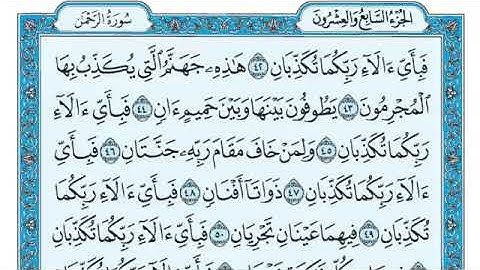 الجُزْءُ السَّابِعُ وَالعِشْرُونَ سُورَةُ الرَّحْمٰن
فَبِأَيِّ ءَالَآءِ رَبِّكُمَا تُكَذِّبَانِ ٤٢ هَٰذِهِۦ جَهَنَّمُ ٱلَّتِي يُكَذِّبُ بِهَا
ٱلْمُجْرِمُونَ ٤٣ يَطُوفُونَ بَيْنَهَا وَبَيْنَ حَمِيمٍ ءَانٍ ٤٤ فَبِأَيِّ ءَالَآءِ
رَبِّكُمَا تُكَذِّبَانِ ٤٥ وَلِمَنْ خَافَ مَقَامَ رَبِّهِۦ جَنَّتَانِ ٤٦ فَبِأَيِّ
ءَالَآءِ رَبِّكُمَا تُكَذِّبَانِ ٤٧ ذَوَاتَآ أَفْنَانٍ ٤٨ فَبِأَيِّ ءَالَآءِ رَبِّكُمَا
تُكَذِّبَانِ ٤٩ فِيهِمَا عَيْنَانِ تَجْرِيَانِ ٥٠ فَبِأَيِّ ءَالَآءِ رَبِّكُمَا تُكَذِّبَانِ